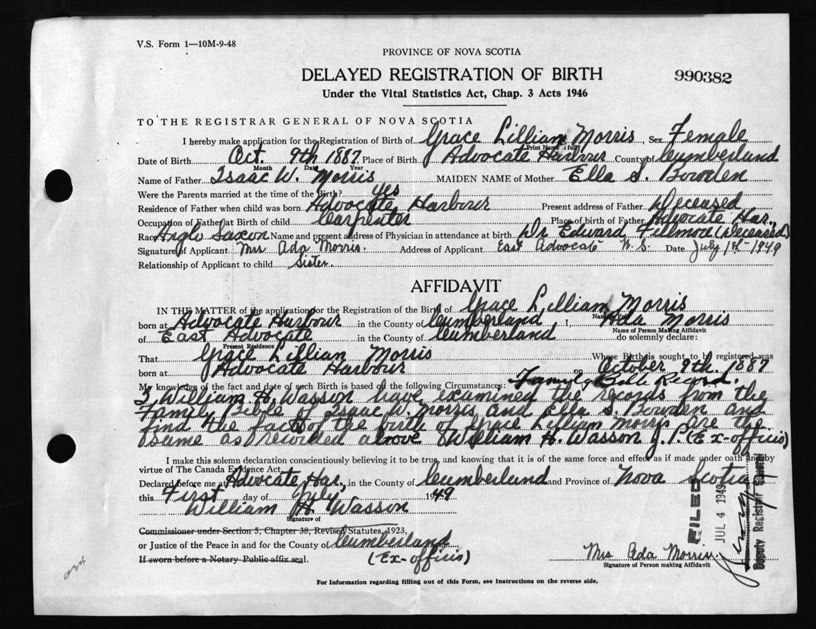 V.S. Form 1—10M-9-48
PROVINCE OF NOVA SCOTIA
DELAYED REGISTRATION OF BIRTH
990382
Under the Vital Statistics Act, Chap. 3 Acts 1946
TO THE REGISTRAR GENERAL OF NOVA SCOTIA
I hereby make application for the Registration of Birth of Grace Lilliam Morris, Sex Female
Print Name in full
Date of Birth Oct. 9th 1887 Place of Birth Advocate Harbour County of Cumberland
Month Day Year
Name of Father Isaac W. Morris MAIDEN NAME of Mother Ella S. Bowden
Were the Parents married at the time of the Birth? Yes
Residence of Father when child was born Advocate Harbour Present address of Father Deceased
Occupation of Father at Birth of child Carpenter Place of birth of Father Advocate Har.
Race Anglo Saxon Name and present address of Physician in attendance at birth Dr Edward Fillmore (Deceased)
Signature of Applicant Mrs Ada Morris. Address of Applicant East Advocate N.S. Date July 1st 1949
Relationship of Applicant to child Sister.
AFFIDAVIT
IN THE MATTER of the application for the Registration of the Birth of Grace Lilliam Morris
born at Advocate Harbour in the County of Cumberland I, Ada Morris
Name of Person Making Affidavit
of East Advocate in the County of Cumberland do solemnly declare:
Present Residence
That Grace Lillian Morris Whose Birth is sought to be registered was
born at Advocate Harbour October 9th. 1887
My knowledge of the fact and date of such Birth is based of the following Circumstances: Family Bible Record.
I, William H. Wasson have examined the records from the
Family Bible of Isaac W. Morris and Ella S. Bowden and
find the facts of the birth of Grace Lilliam Morris are the
same as recorded above William H. Wasson J.P. (Ex-officio)
I make this solemn declaration conscientiously believing it to be true, and knowing that it is of the same force and effect as if made under oath and by
virtue of The Canada Evidence Act.
Declared before me at Advocate Har. in the County of Cumberland and Province of Nova Scotia
this First day of July 1949
William H. Wasson
Signature of
Commissioner under Section 5, Chapter 38, Revised Statutes, 1923,
or Justice of the Peace in and for the County of Cumberland
If sworn before a Notary Public affix seal. (Ex-officio)
Mrs Ada Morris.
Signature of Person making Affidavit
FILED
JUL 4 1949
Deputy Registrar General
For Information regarding filling out of this Form, see Instructions on the reverse side.